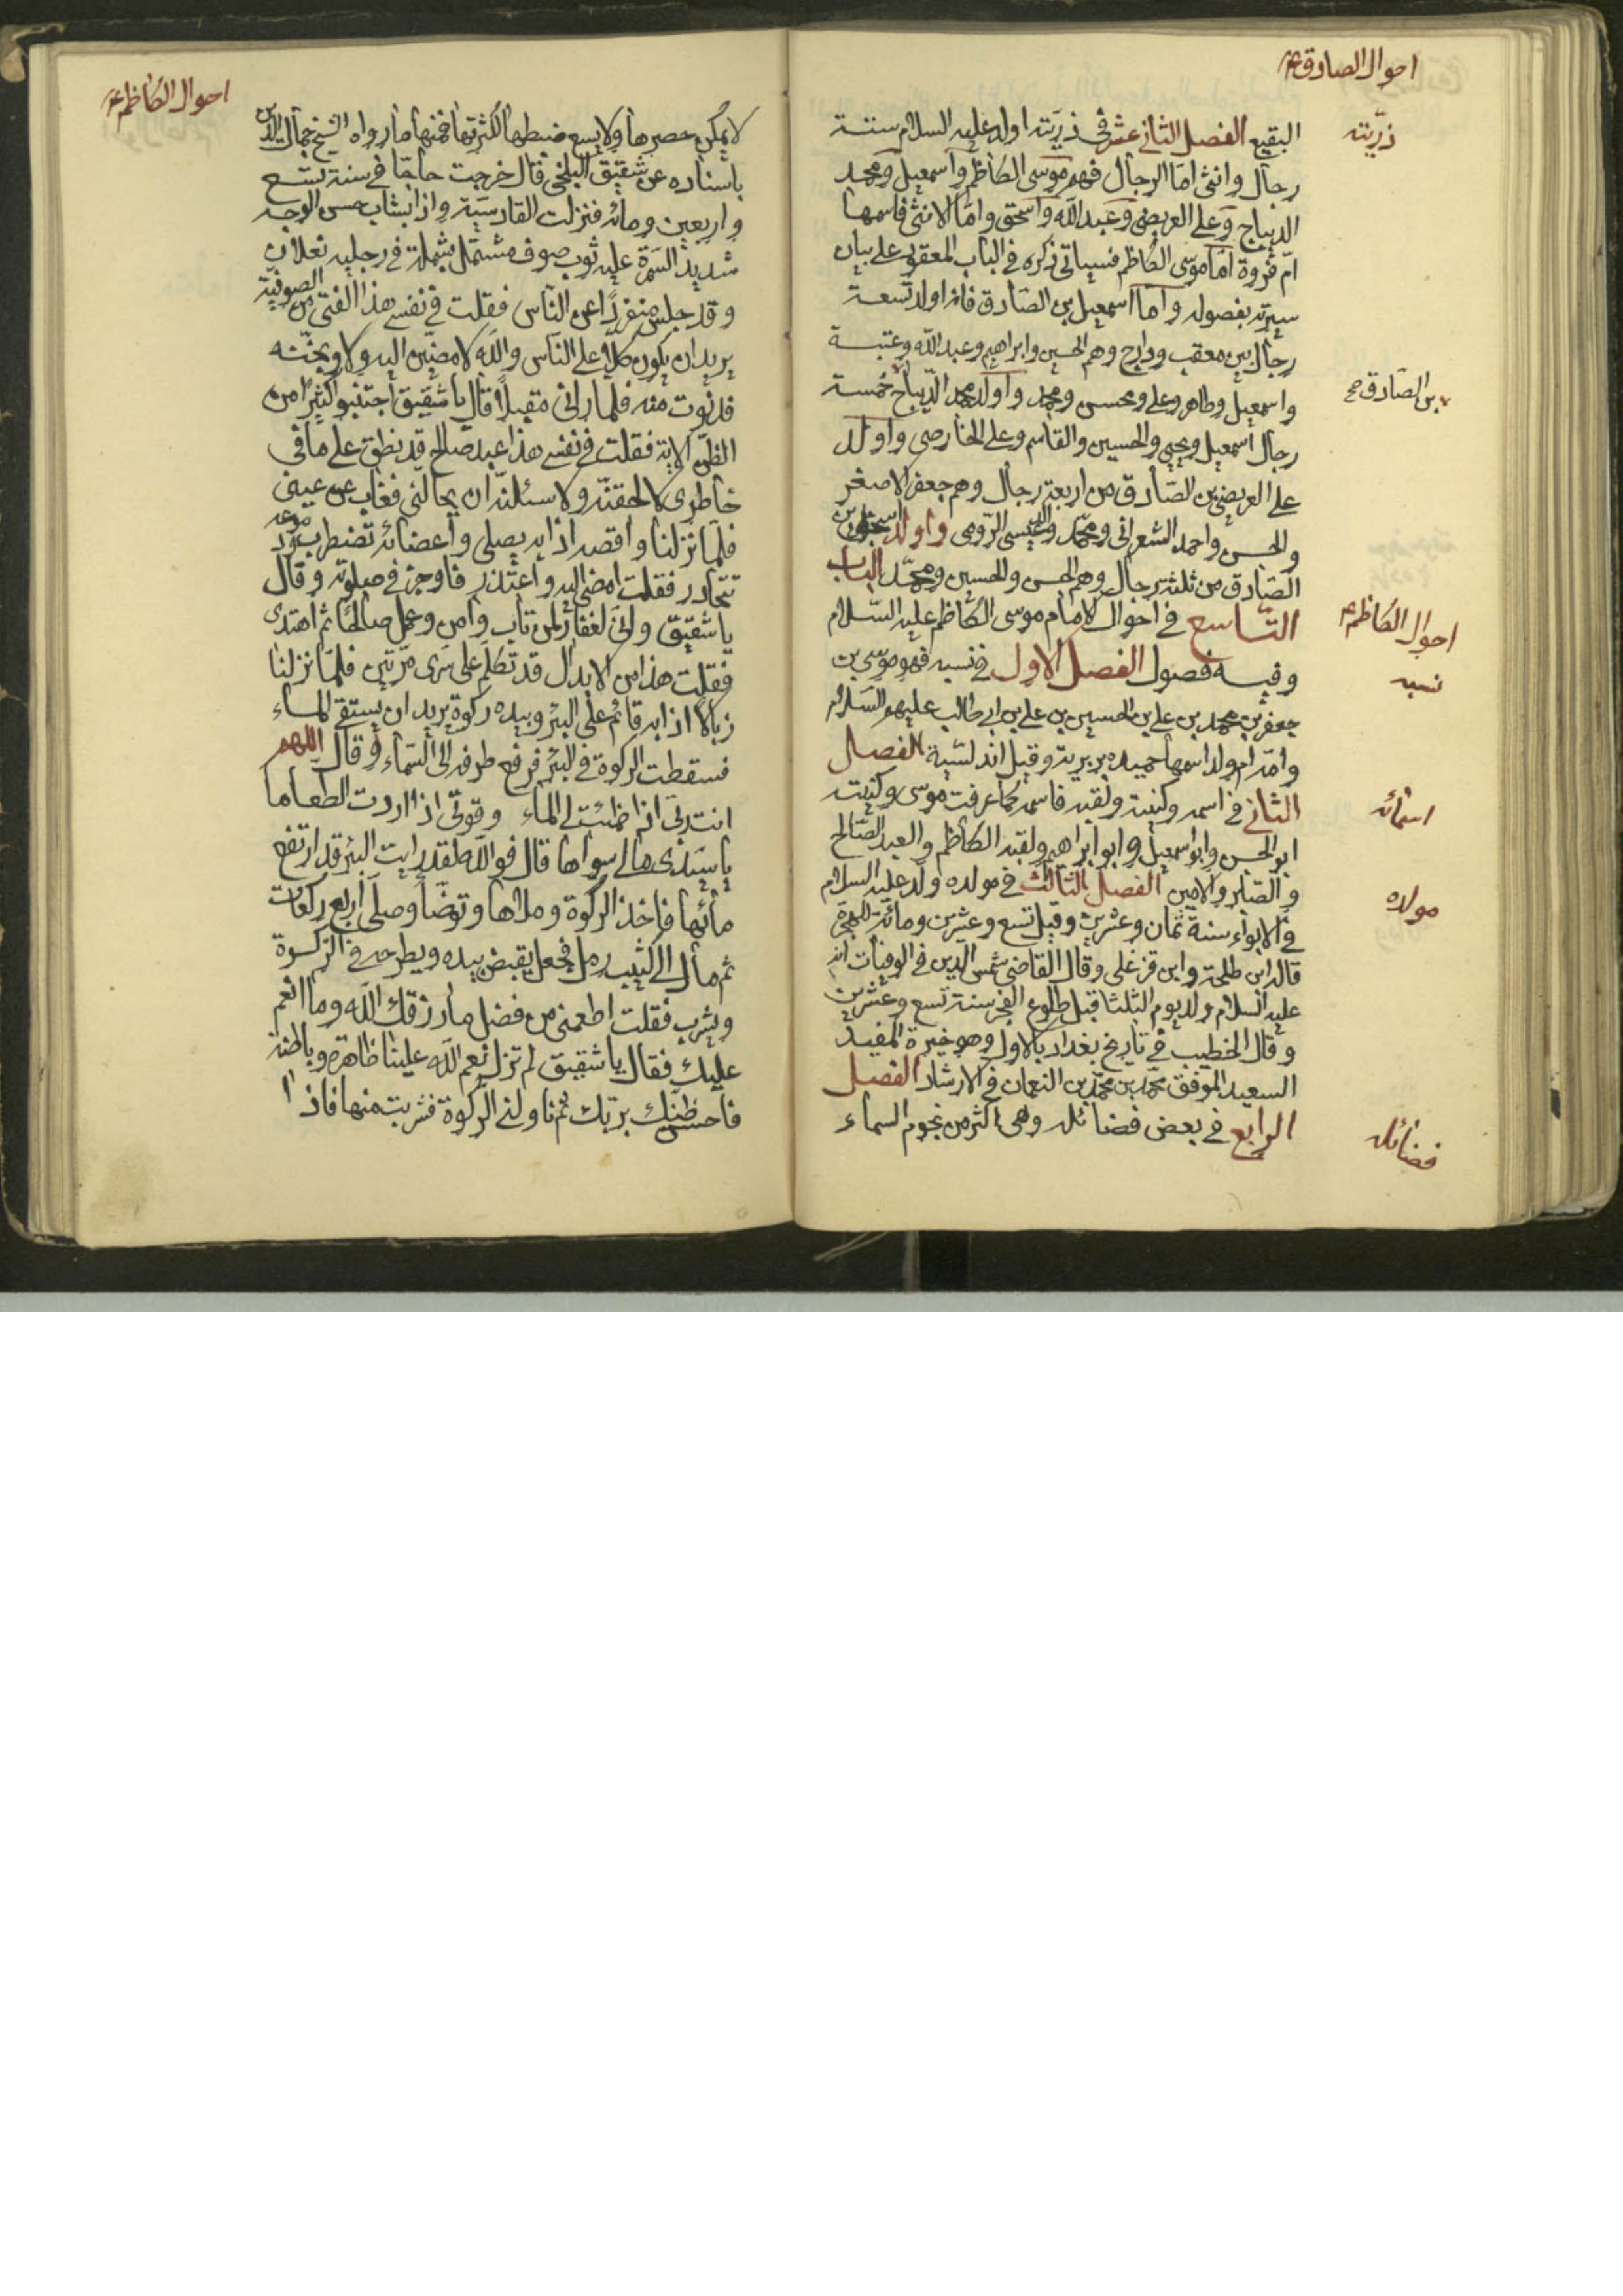 احوال الصادق ع
ذريته
البقيع الفصل الثاني عشر في ذريته اولد عليه السلام ستة
رجال وانثى اما الرجال فهم موسى الكاظم واسمعيل ومحمد
الديباج وعلى العريضى وعبد الله واسحق واما الانثى فاسمها
ام فروة اما موسى الكاظم فسياتى ذكره في الباب المعقود على بيان
سيرته بفصوله واما اسمعيل بن الصادق فانه اولد تسعة
رجال بين معقب ودارج وهم الحسين وابراهيم وعبد الله وعتبة
واسمعيل وطاهر وعلى ومحسن ومحمد واولد محمد الديباج خمسة
بن الصادق صح
رجال اسمعيل ويحيى والحسين والقاسم وعلى الخارصى واولد
على العريضى بن الصادق من اربعة رجال وهم جعفر الاصغر
والحسن واحمد الشعرانى ومحمد وعيسى الرومى واولد اسحق بن
الصادق من ثلثة رجال وهم الحسن والحسين ومحمد الباب
التاسع في احوال الامام موسى الكاظم عليه السلام
احوال الكاظم ع
وفيه فصول الفصل الاول في نسبه فهو موسى بن
نسبه
جعفر بن محمد بن على بن الحسين بن على بن ابى طالب عليهم السلام
وامه ام ولد اسمها حميده بربرية وقيل اندلسية الفصل
الثاني في اسمه وكنيته ولقبه فاسمه كما عرفت موسى وكنيته
اسمائه
ابو الحسن وابو اسمعيل وابو ابراهيم ولقبه الكاظم والعبد الصالح
والصابر والامين الفصل الثالث في مولده ولد عليه السلام
مولده
في الابواء سنة ثمان وعشرين وقيل تسع وعشرين ومائة للهجرة
قاله ابن طلحة وابن قزغلى وقال القاضى شمس الدين في الوفيات انه
عليه السلام ولد يوم الثلثا قبل طلوع الفجر سنة تسع وعشرين
وقال الخطيب في تاريخ بغداد بالاول وهو خيرة المفيد
السعيد الموفق محمد بن محمد بن النعمان في الارشاد الفصل
الرابع في بعض فضائله وهى اكثر من نجوم السماء
فضائله
احوال الكاظم ع
لا يمكن حصرها ولا يسع ضبطها لكثرتها فمنها ما رواه الشيخ جمال الدين
باسناده عن شقيق البلخى قال خرجت حاجا في سنة تسع
واربعين ومائه فنزلت القادسية واذا بشاب حسن الوجه
شديد السمرة عليه ثوب صوف مشتمل بشملة في رجليه نعلان
وقد جلس منفردا عن الناس فقلت في نفسى هذا الفتى من الصوفية
يريد ان يكون كلا على الناس والله لامضين اليه ولاوبخنه
فدنوت منه فلما رانى مقبلا قال يا شقيق اجتنبوا كثيرا من
الظن الاية فقلت في نفسى هذا عبد صالح قد نطق على ما في
خاطرى لالحقنه ولاسئلنه ان يحاللنى فغاب عن عينى
فلما نزلنا واقصه اذا به يصلى واعضائه تضطرب ودموعه
تتحادر فقلت امضى اليه واعتذر فاوجز في صلوته وقال
يا شقيق وانى لغفار لمن تاب وامن وعمل صالحا ثم اهتدى
فقلت هذا من الابدال قد تكلم على سرى مرتين فلما نزلنا
زبالا اذا به قائم على البئر وبيده ركوة يريد ان يستقى الماء
فسقطت الركوة في البئر فرفع طرفه الى السماء وقال اللهم
انت ربى اذا ظمئت الى الماء وقوتى اذا اردت الطعاما
يا سيدى مالى سواها قال فوالله لقد رايت البئر قد ارتفع
مائها فاخذ الركوة وملاها وتوضا وصلى اربع ركعات
ثم مال الى كثيب رمل فجعل يقبض بيده ويطرحه في الركوة
ويشرب فقلت اطعمنى من فضل ما رزقك الله وما انعم
عليك فقال يا شقيق لم تزل نعم الله علينا ظاهرة وباطنة
فاحسن ظنك بربك ثم ناولنى الركوة فشربت منها فاذا